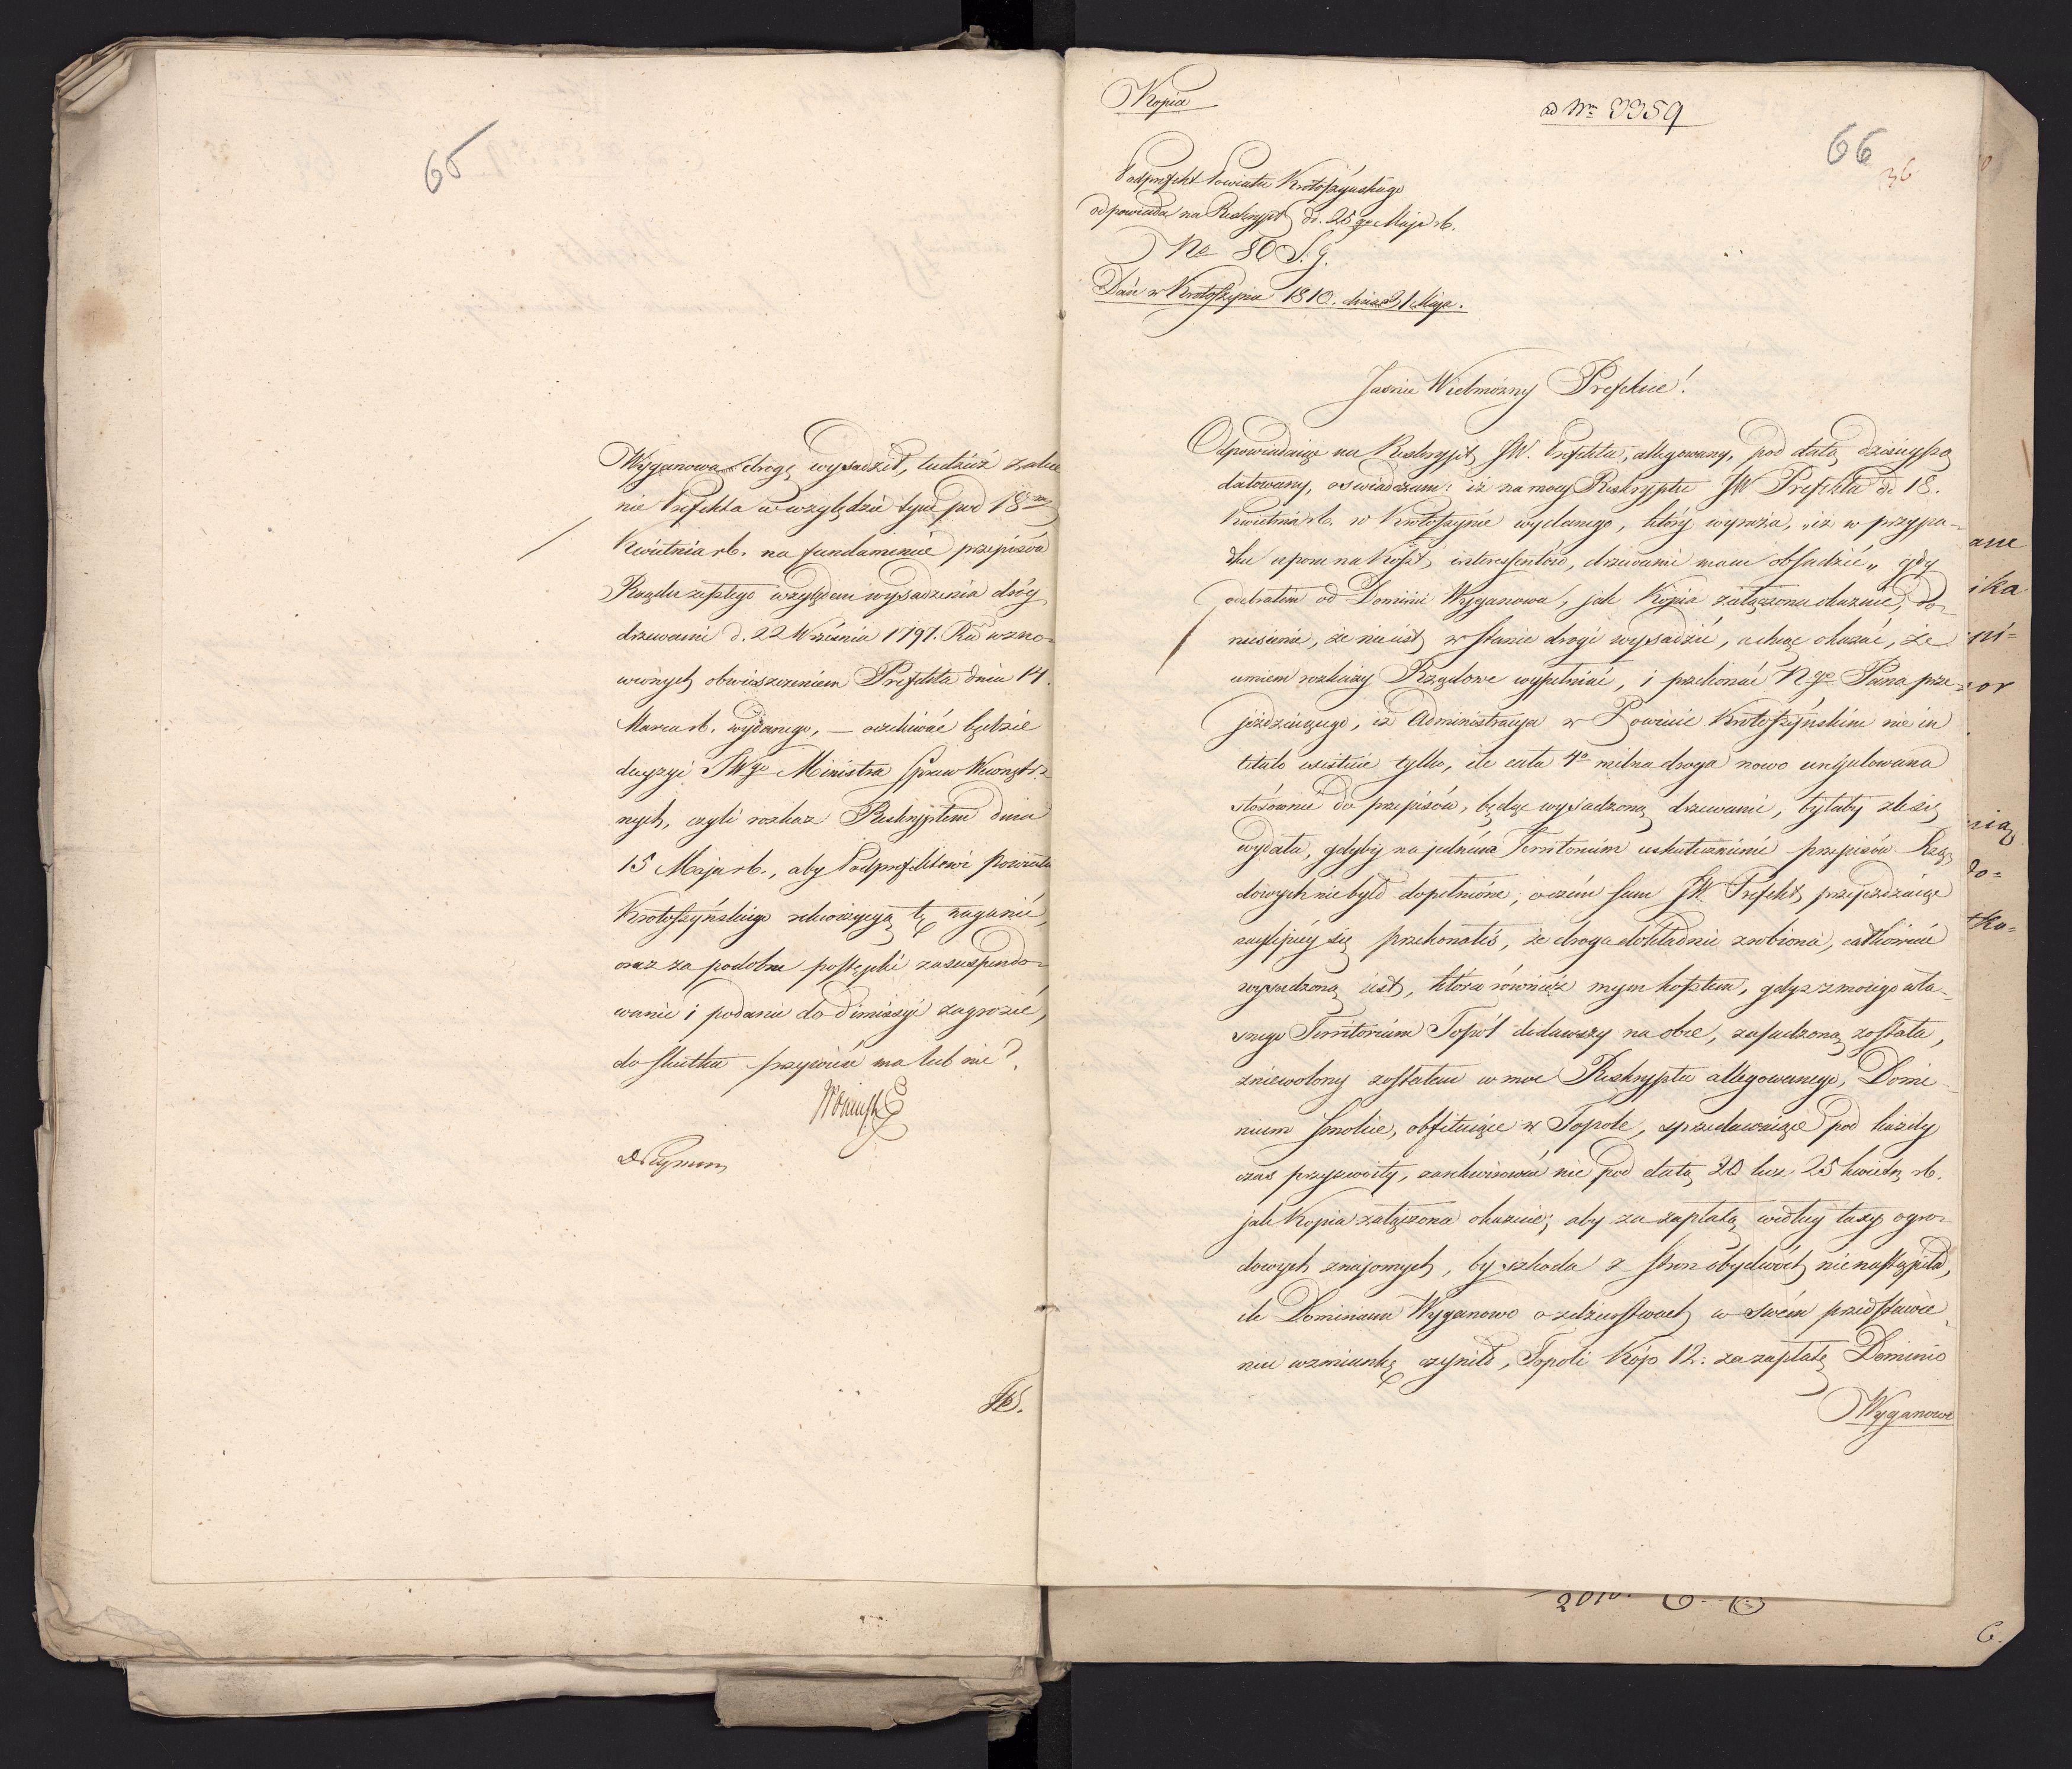 65
Wyganowa drogę wysadził, tudzież zalece
nie Prefekta w względzie tym pod 18
Kwietnia rb. na fundamencie przepisów
Rządu zeszłego względem wysadzenia dróg
drzewami d. 22 Września 1797. Ru wzno-
wionych obwieszczeniem Prefekta dnia 14.
Marca rb. wydanego, — oczekiwać będzie
decyzyi JWgo Ministra Spraw Wewnętrz
nych, czyli rozkaz Reskryptem dnia
15 Maja rb., aby Podprefektowi Powiatu
Krotoszyńskiego rekwizycyą tę naganić,
oraz za podobne postępki zasuspendo-
wanie i podanie do dimissyi zagrozić,
do skutku przywieść ma lub nie?
JWS.
Kopia
ad Nr 3359
66
36
Podprefekt Powiatu Krotoszyńskiego
odpowiada na Reskrypt d. 25go Maja rb.
No 80 S. g.
Dan w Krotoszynie 1810. dnia 31 Maja.
Jaśnie Wielmożny Prefekcie!
Odpowiadaiąc na Reskrypt JW. Prefekta, allegowany, pod datą dzisieyszą
datowany, oświadczam: iż na mocy Reskryptu JW Prefekta d. 18.
Kwietnia rb. w Krotoszynie wydanego, który wyraża, „iż w przypa-
dku uporu na koszt interessentów, drzewami mam obsadzić„ gdy
odebrałem od Dominii Wyganowa, jak Kopia załączona okazuie, do-
niesienie, że nie iest w stanie drogi wysadzić, a chcąc okazać, że
umiem rozkazy Rządowe wypełniać, i przekonać Ngo Pana prze-
jeżdżaiącego, iż Administracya w Powiecie Krotoszyńskim nie in
titulo istnieie tylko, ile cała 4o milna droga nowo uregulowana
stósownie do przepisów, będąc wysadzoną drzewami, byłaby źle się
wydała, gdyby na jednem Territorium uskutecznienie przepisów Rzą-
dowych nie było dopełnione; o czém sam JW. Prefekt przejeżdżaiąc
naylepiey się przekonałeś, że droga dokładnie zrobiona, całkowicie
wysadzoną iest, która również mym kosztem, gdyż z moiego wła-
snego Territorium Topol dodawszy na obce, zasadzoną została,
zniewolony zostałem w moc Reskryptu allegowanego, Domi-
nium Smolice, obfituiące w Topole, sprzedawaiące pod każdy
czas przyzwoity, zarekwirować nie pod datą 20 lecz 25 kwietn. rb.
jak Kopia załączona okazuie; aby za zapłatą według taxy ogro-
dowych znajomych, by szkoda z stron obydwóch nie nastąpiła,
ile Dominium Wyganowo o zdzierstwach w swém przedstawie-
niu wzmiankę czyniło, Topoli Kóp 12: za zapłatę Dominio
Wyganowo